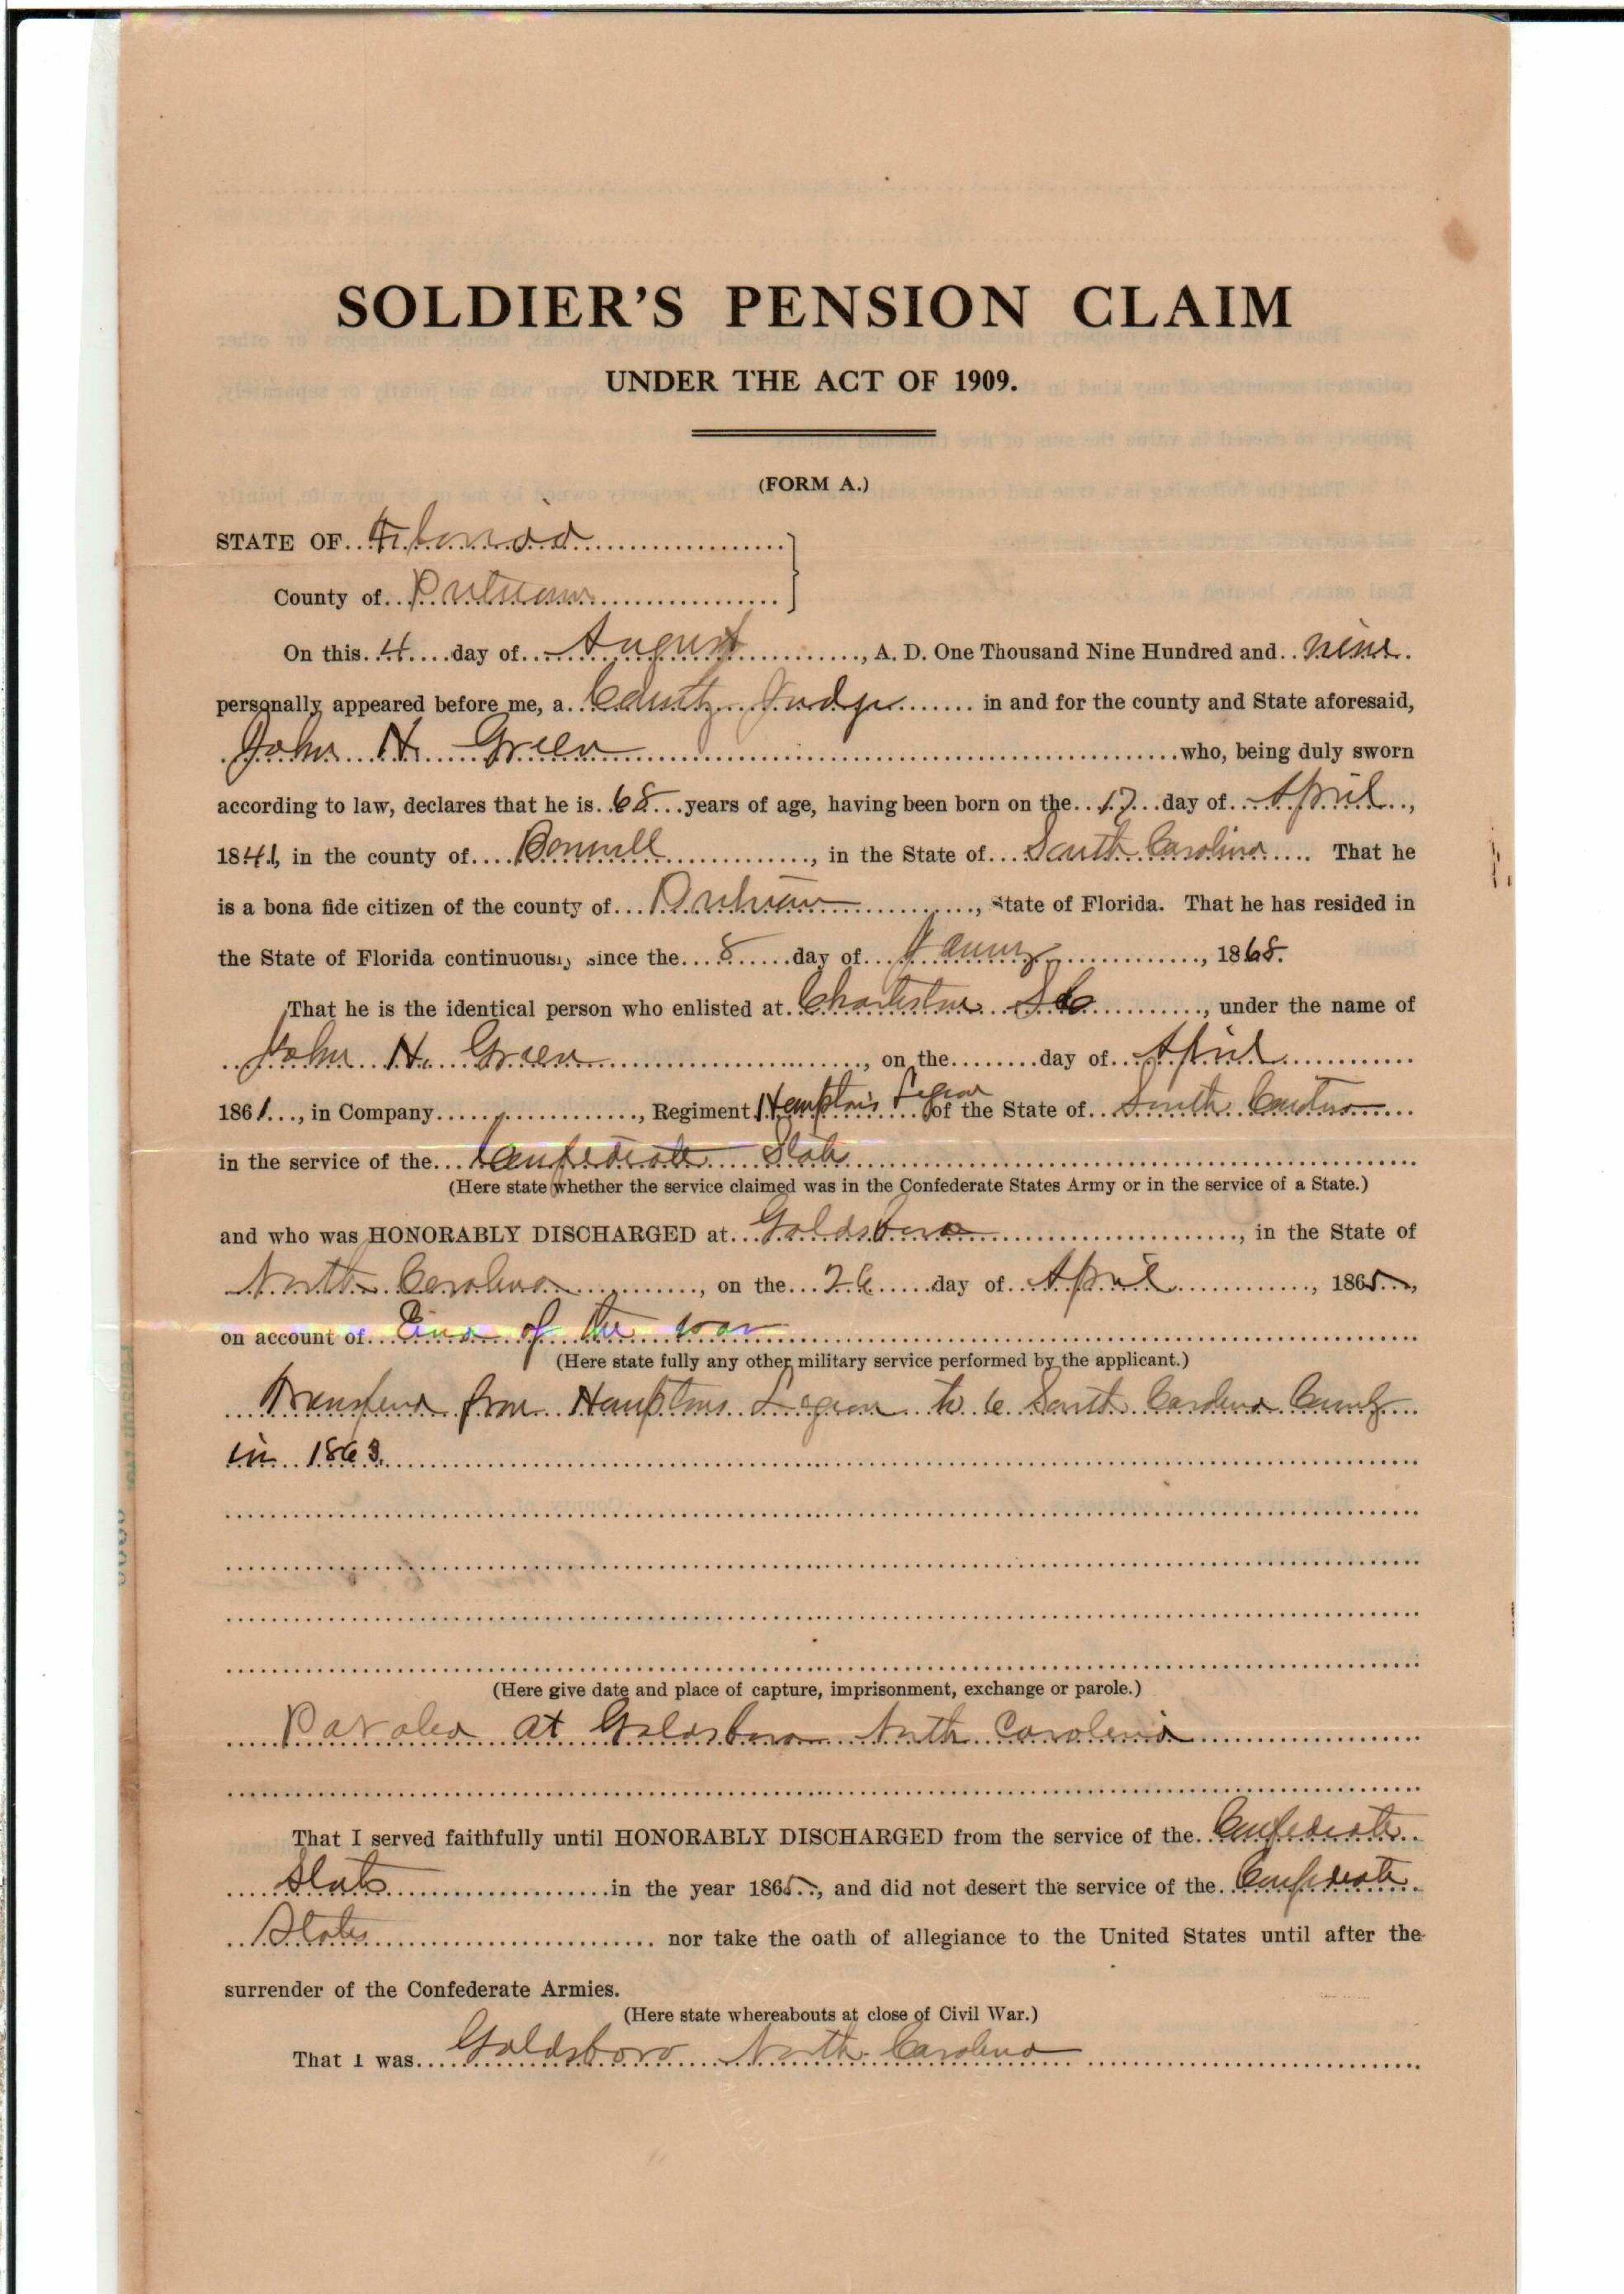 SOLDIER'S PENSION CLAIM
UNDER THE ACT OF 1909.
(FORM A.)
STATE OF Florida
County of Putnam
On this 4 day of August, A. D. One Thousand Nine Hundred and nine
personally appeared before me, a County Judge in and for the county and State aforesaid,
John H. Green who, being duly sworn
according to law, declares that he is 68 years of age, having been born on the 17 day of April,
1841, in the county of, in the State of South Carolina That he
is a bona fide citizen of the county of Putnam, State of Florida. That he has resided in
the State of Florida continuously since the 8 day of, 1868.
That he is the identical person who enlisted at Charleston S C, under the name of
John H. Green, on the day of April
1861, in Company, Regiment Hampton's Legion of the State of South Carolina
in the service of the Confederate States
(Here state whether the service claimed was in the Confederate States Army or in the service of a State.)
and who was HONORABLY DISCHARGED at Goldsboro, in the State of
North Carolina, on the 26 day of April, 1865,
on account of End of the war
(Here state fully any other military service performed by the applicant.)
from Hamptons Legion to 6 South Carolina
in 1863.
(Here give date and place of capture, imprisonment, exchange or parole.)
Paroled at Goldsboro North Carolina
That I served faithfully until HONORABLY DISCHARGED from the service of the Confederate
States in the year 1865, and did not desert the service of the Confederate
States nor take the oath of allegiance to the United States until after the
surrender of the Confederate Armies.
(Here state whereabouts at close of Civil War.)
That I was Goldsboro North Carolina